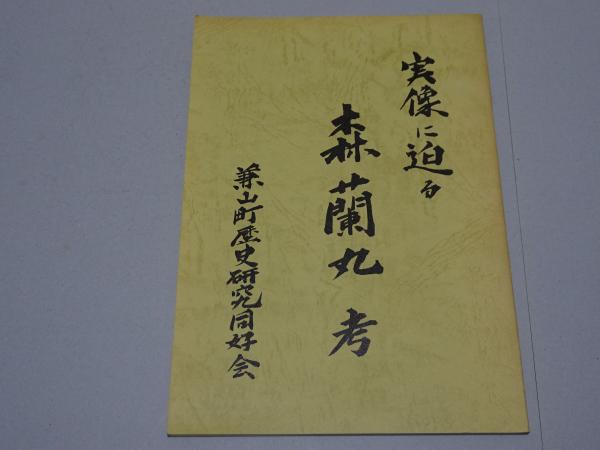 実像に迫る
森蘭丸考
兼山町歴史研究同好会